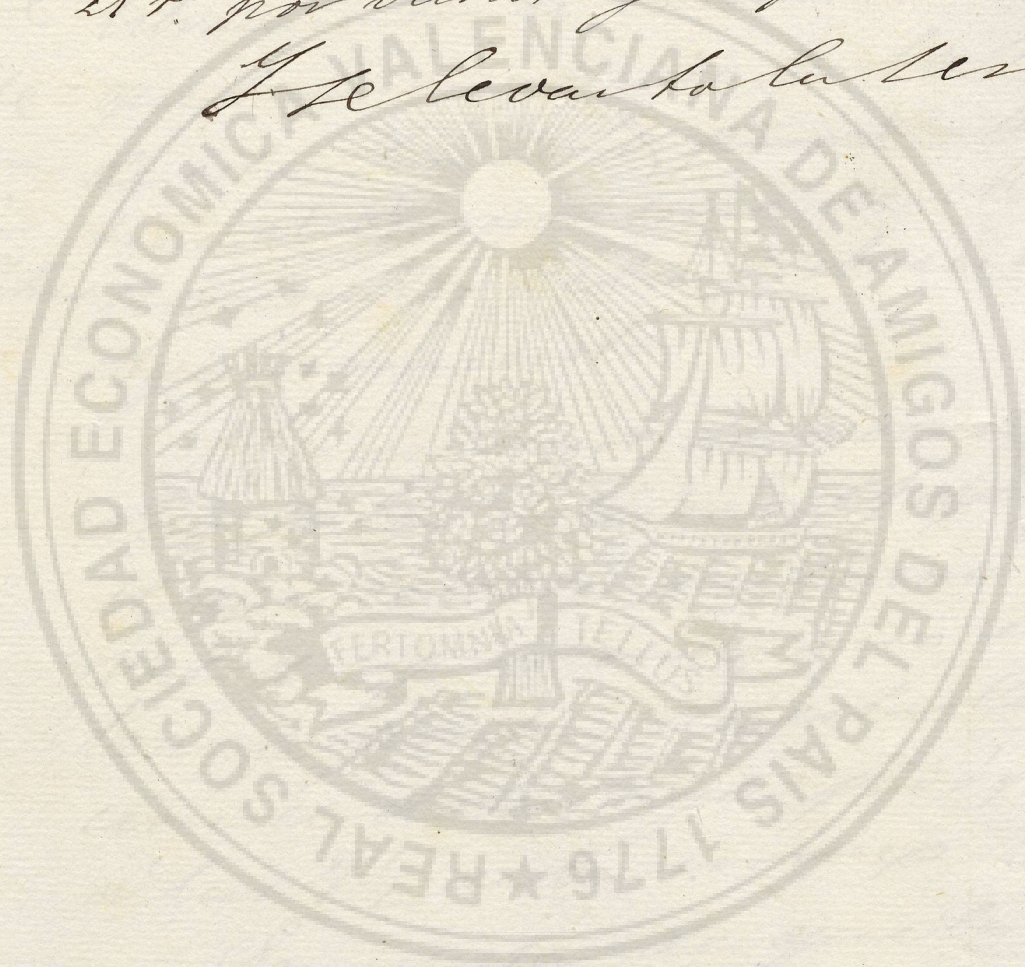 por
Y se levanto la ses
REAL SOCIEDAD ECONOMICA VALENCIANA DE AMIGOS DEL PAIS 1776
FERT OMNIA TELLUS